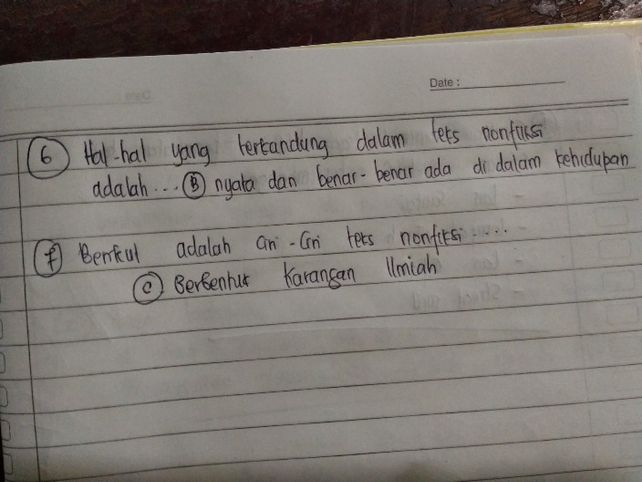 Date :
6 Hal-hal yang terkandung dalam teks nonfiksi
adalah... B nyata dan benar-benar ada di dalam kehidupan
7 Berikut adalah Ciri-Ciri teks nonfiksi.....
C Berbentuk Karangan Ilmiah